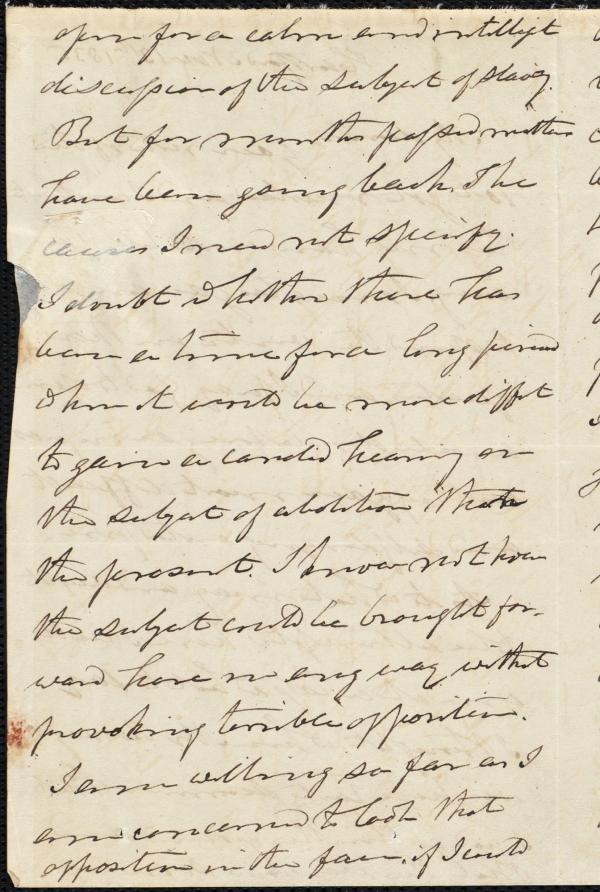 open for a calm and intelligt
discussion of the subject of slavery.
But for months passed matters
have been going back. The
causes I need not specify.
I doubt whether there has
been a time for a long period
when it would be more difficult
to gain a candid hearing on
the subject of abolition than
the present. I know not how
the subject could be brought for-
ward here in any way without
provoking terrible opposition.
I am willing so far as I
am concerned to look that
opposition in the face, if I could